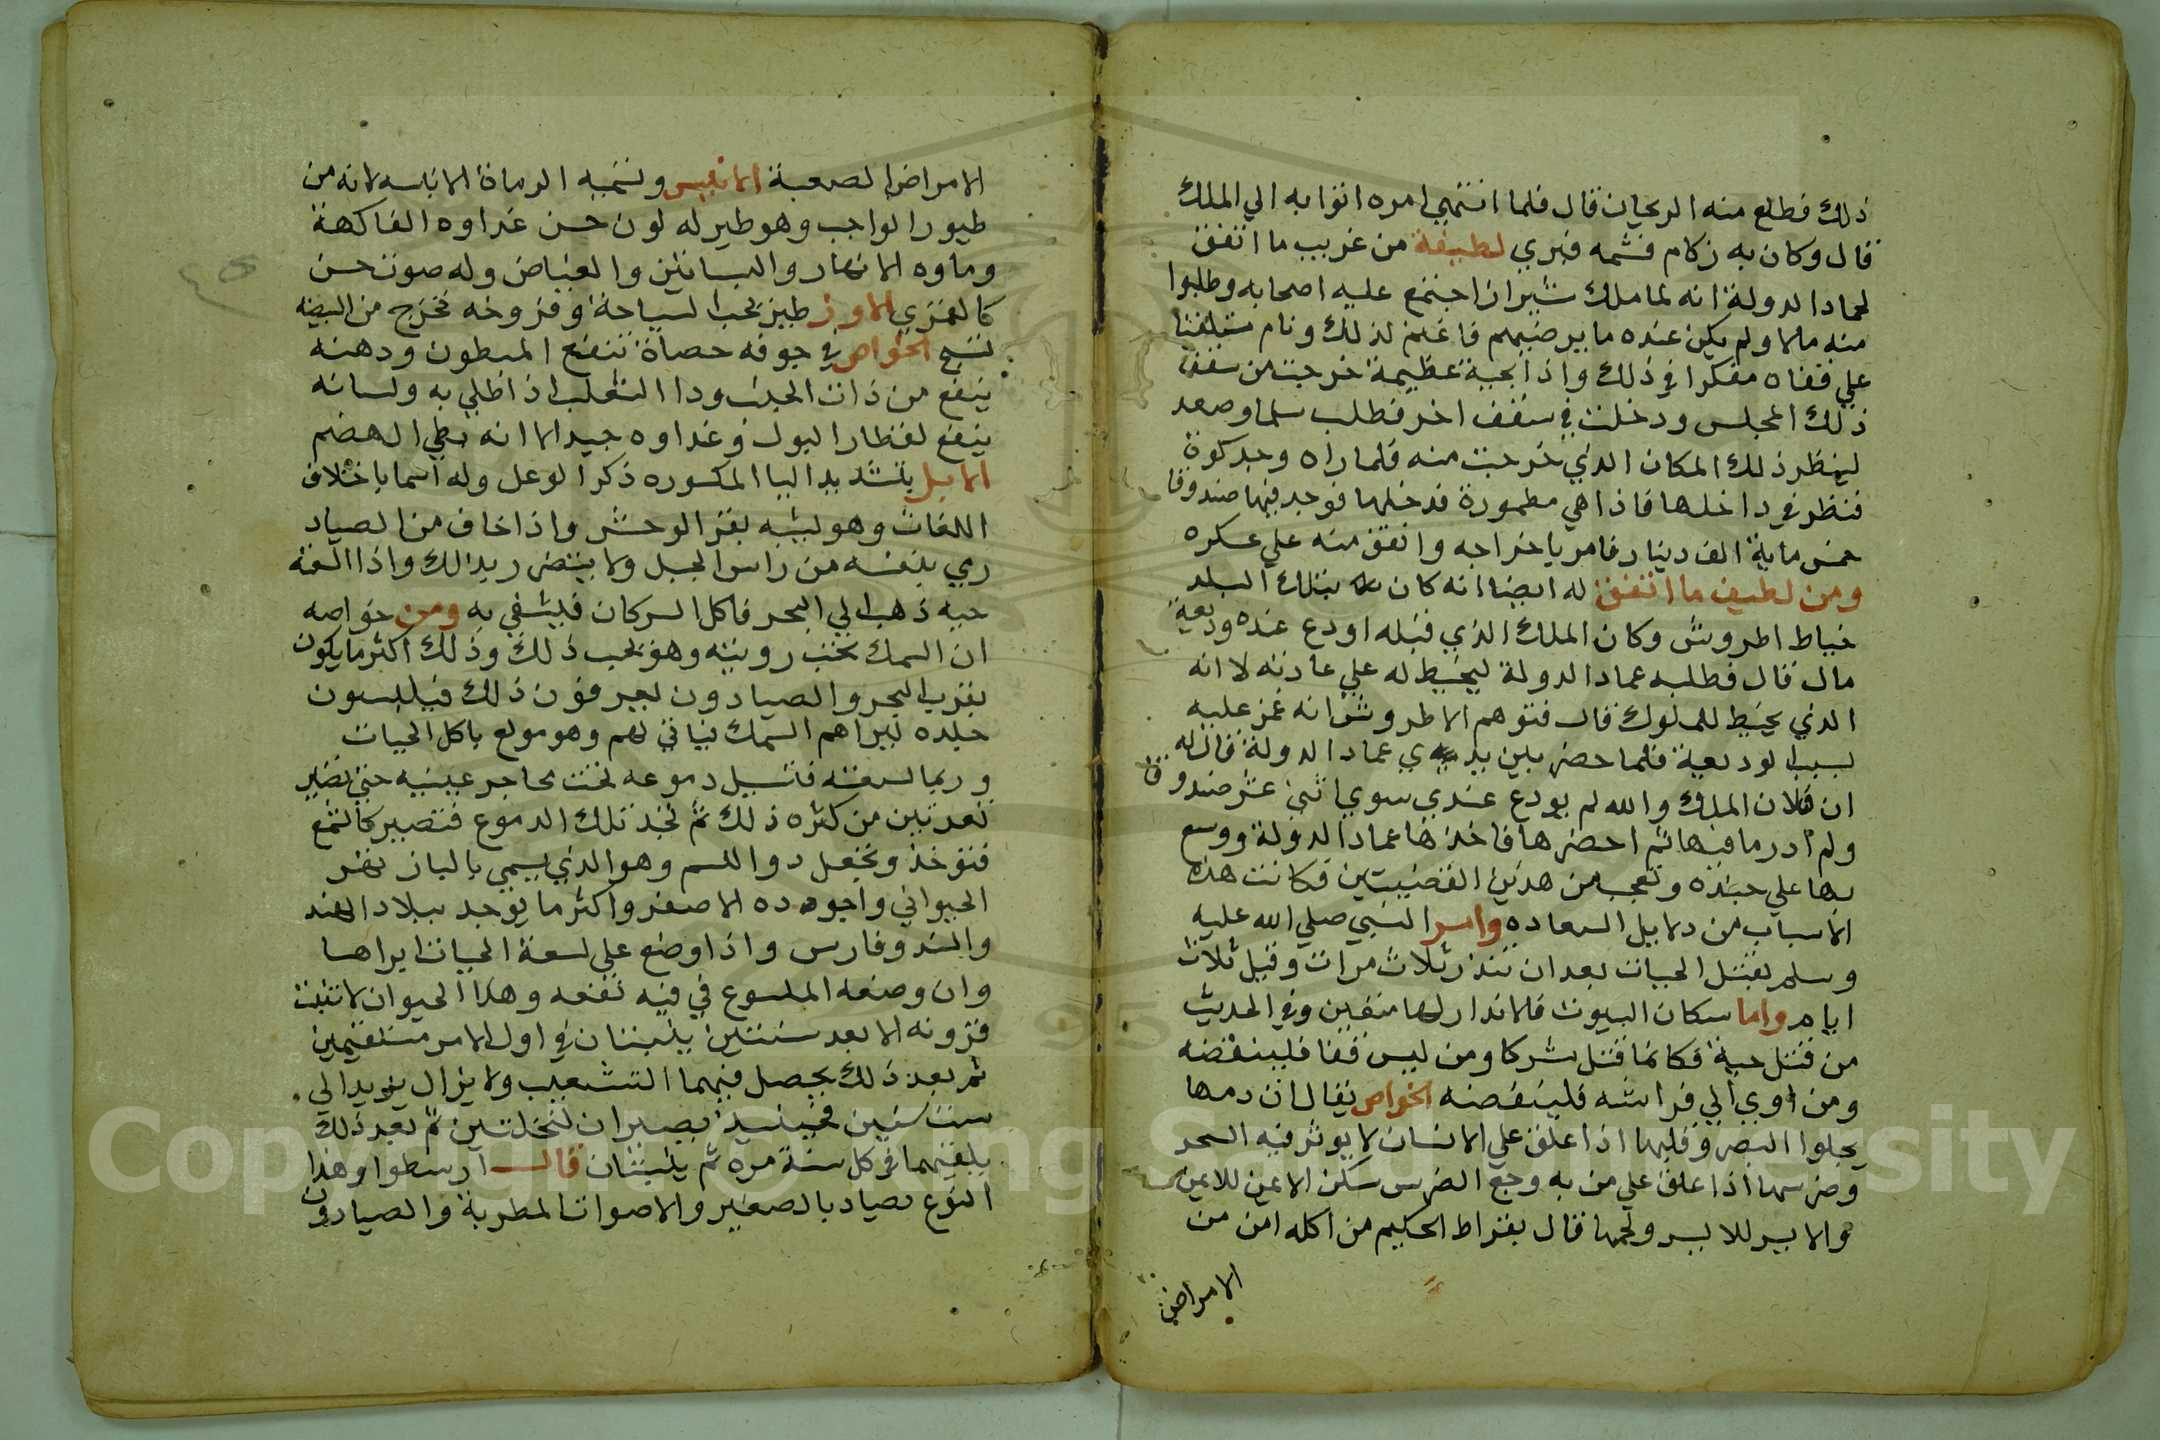 ذلك فطلع منه الريحان قال فلما انتهي امره اتوا به الي الملك
قال وكان به زكام فشمه فبري لطيفة من غريب ما اتفق
لعماد الدولة انه لما ملك شيراز اجتمع عليه اصحابه وطلبوا
منه مالا ولم يكن عنده ما يرضيهم فاغتم لذلك ونام مستلقيا
علي قفاه مفكرا في ذلك واذا بحية عظيمة خرجت من سقف
ذلك المجلس ودخلت في سقف اخر فطلب سلما وصعد
لينظر ذلك المكان الذي خرجت منه فلما راه وجد كوة
فنظر في داخلها فاذا هي مطمورة فدخلها فوجد فيها صندوقا
خمس ماية الف دينار فامر باخراجه وانفق منه علي عسكره
ومن لطيف ما اتفق له ايضا انه كان بتلك البلد
خياط اطروش وكان الملك الذي قبله اودع عنده وديعة
مال قال فطلبه عماد الدولة ليخيط له علي عادته لانه
الذي يخيط للملوك قال فتوهم الاطروش انه غمز عليه
بسبب الوديعة فلما حضر بين يدي عماد الدولة قال له
ان فلان الملك والله لم يودع عندي سوي اثني عشر صندوقا
ولم ادر ما فيها ثم احضرها فاخذها عماد الدولة ووسع
بها علي جنده وتعجب من هذين القضيتين فكانت هذه
الاسباب من دلايل السعاده وامر النبي صلي الله عليه
وسلم بقتل الحيات بعد ان تنذر ثلاث مرات وقيل ثلاث
ايام واما سكان البيوت فالانذار لها متعين وفي الحديث
من قتل حية فكانما قتل مشركا ومن لبس خفا فلينفضه
ومن اوي الي فراشه فلينفضه الخواص يقال ان دمها
يجلوا البصر وقلبها اذا علق علي الانسان لا يوثر فيه السحر
وضرسها اذا علق علي من به وجع الضرس سكن الايمن للايمن
والايسر للايسر ولحمها قال بقراط الحكيم من اكله امن من
الامراض
الامراض الصعبة الانيس وتسميه الرماة الانيسه لانه من
طيور الواجب وهو طير له لون حسن غداوه الفاكهة
وماوه الانهار والبساتين والغياض وله صوت حسن
كالقمري الاوز طير يحب السباحة وفروخه تخرج من البيضه
تسبح الخواص في جوفه حصاة تنفع المبطون ودهنه
ينفع من ذات الجنب ودا الثعلب اذا طلي به ولسانه
ينفع لقطار البول وغداوه جيد الا انه بطي الهضم
الايل بتشديد اليا المكسوره ذكر الوعل وله اسما باختلاف
اللغات وهو يشبه بقر الوحش واذا خاف من الصياد
رمي بنفسه من راس الجبل ولا يتضرر بذلك واذا السعته
حيه ذهب الي البحر فاكل السركان فيشفي به ومن خواصه
ان السمك تحب رويته وهو يحب ذلك وذلك اكثر ما يكون
بقرب البحر والصيادون يعرفون ذلك فيلبسون
جلده ليراهم السمك فياتي لهم وهو مولع باكل الحيات
وربما لسعته فتسيل دموعه تحت محاجر عينيه حتي تصير
نقرتين من كثره ذلك ثم تجمد تلك الدموع فتصير كالشمع
فتوخذ وتجعل دوا للسم وهو الذي يسمي بالبازهر
الحيواني واجوده الاصفر واكثر ما يوجد ببلاد الهند
والسند وفارس واذا وضع علي لسعة الحيات ابراها
وان وضعه الملسوع في فيه نفعه وهذا الحيوان لا تنبت
قرونه الا بعد سنتين ينبتان في اول الامر مستقيمين
ثم بعد ذلك يحصل فيهما التشعيب ولا يزال يزيد الي
ست سنين فحينيذ يصيران كنخلتين ثم بعد ذلك
يلقيهما في كل سنة مره ثم ينبتان قال ارسطوا وهذا
النوع يصاد بالصفير والاصوات المطربة والصيادون
Copyright © King Saud University